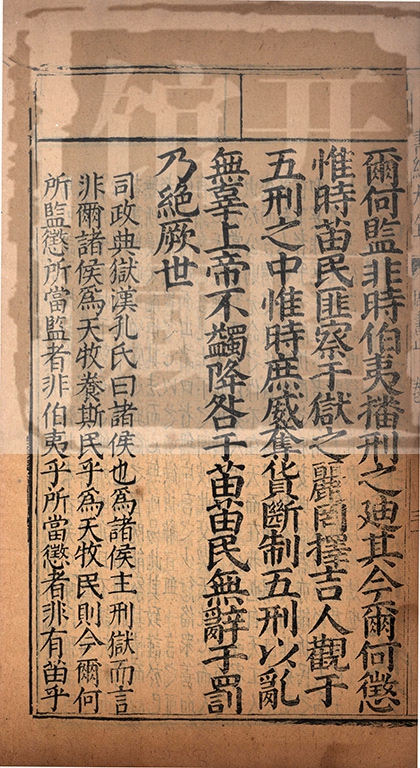 爾何監非時伯夷播刑之廸其今爾何懲
惟時苗民匪察于獄之麗罔擇吉人觀于
五刑之中惟時庶威奪貨斷制五刑以亂
無辜上帝不蠲降咎于苗苗民無辭于罰
乃絕厥世
司政典獄漢孔氏曰諸侯也為諸侯主刑獄而言
非爾諸侯為天牧養斯民乎為天牧民則今爾何
所監懲所當監者非伯夷乎所當懲者非有苗乎